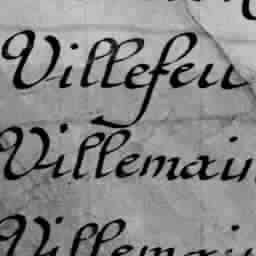 Villefeu
Villemain
Villemain